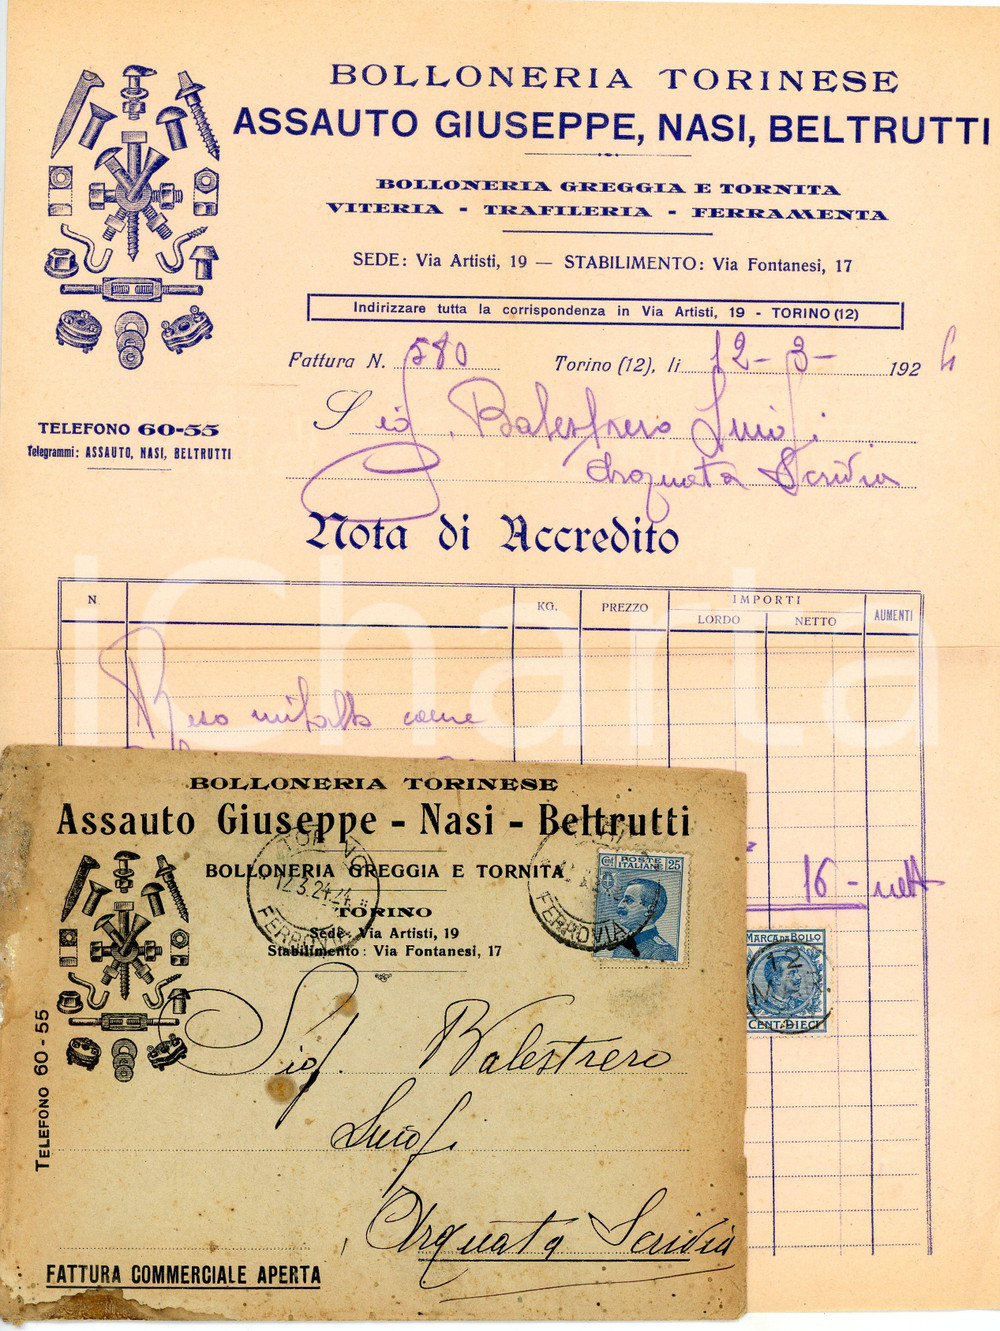 BOLLONERIA TORINESE
ASSAUTO GIUSEPPE, NASI, BELTRUTTI
BOLLONERIA GREGGIA E TORNITA
VITERIA - TRAFILERIA - FERRAMENTA
SEDE: Via Artisti, 19 — STABILIMENTO: Via Fontanesi, 17
Indirizzare tutta la corrispondenza in Via Artisti, 19 - TORINO (12)
Fattura N. 580 Torino (12), li 12-3- 1924
TELEFONO 60-55
Telegrammi: ASSAUTO, NASI, BELTRUTTI
Sig. Balestrero Luigi
Arquata Scrivia
Nota di Accredito
N. KG. PREZZO IMPORTI AUMENTI
LORDO NETTO
Reso come
16 - netto
MARCA DA BOLLO
12 MAR
CENT. DIECI
iCharta
BOLLONERIA TORINESE
Assauto Giuseppe - Nasi - Beltrutti
BOLLONERIA GREGGIA E TORNITA
TORINO
Sede: Via Artisti, 19
Stabilimento: Via Fontanesi, 17
TORINO
12.3.24
FERROVIA
FERROVIA
POSTE ITALIANE
Cent. 25
TELEFONO 60-55
Sig. Balestrero
Luigi
Arquata Scrivia
FATTURA COMMERCIALE APERTA